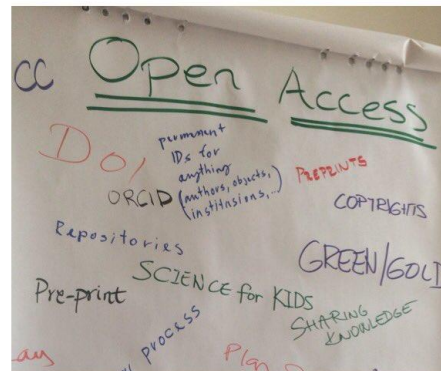 CC
Open Access
DOI
permanent
IDs for
anything
(authors, objects,
institusions,...)
ORCID
PREPRINTS
COPYRIGHTS
Repositories
GREEN/GOLD
SCIENCE for KIDS
Pre-print
SHARING
KNOWLEDGE
process
Plan